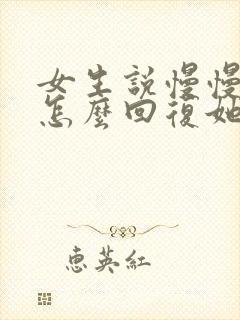 女生說慢慢
怎麼回復她
惠英紅